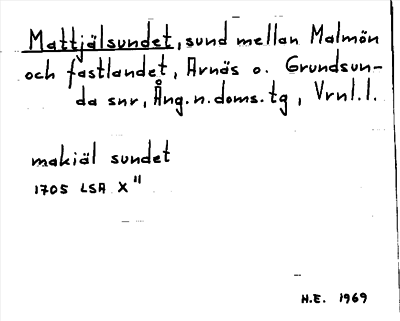 Mattjälsundet, sund mellan Malmön
och fastlandet, Arnäs o. Grundsun-
da snr, Ång.n.doms.tg, Vrnl.l.
makiäl sundet
1705 LSA X"
H.E. 1969